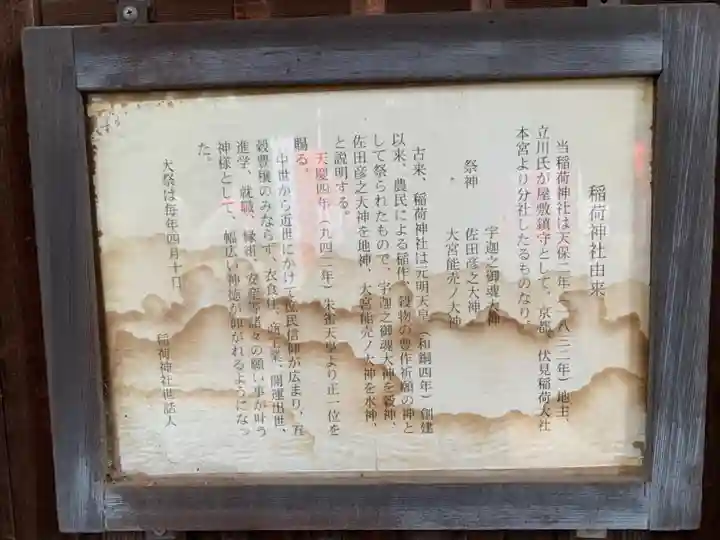 稲荷神社由来
当稲荷神社は天保二年(一八三二年)地主、
立川氏が屋敷鎮守として、京都、伏見稲荷大社
本宮より分社したるものなり。
祭神 宇迦之御魂大神
佐田彦之大神
大宮能売ノ大神
古来、稲荷神社は元明天皇(和銅四年)創建
以来、農民による稲作、穀物の豊作祈願の神と
して祭られたもので、宇迦之御魂大神を穀神、
佐田彦之大神を地神、大宮能売ノ大神を水神、
と説明する。
天慶四年(九四二年)朱雀天皇より正一位を
賜る。
中世から近世にかけて庶民信仰が広まり、五
穀豊穣のみならず、衣食住、商工業、開運出世、
進学、就職、縁組、安産等諸々の願い事が叶う
神様として、幅広い神徳が仰がれるようになっ
た。
大祭は毎年四月十日
稲荷神社世話人